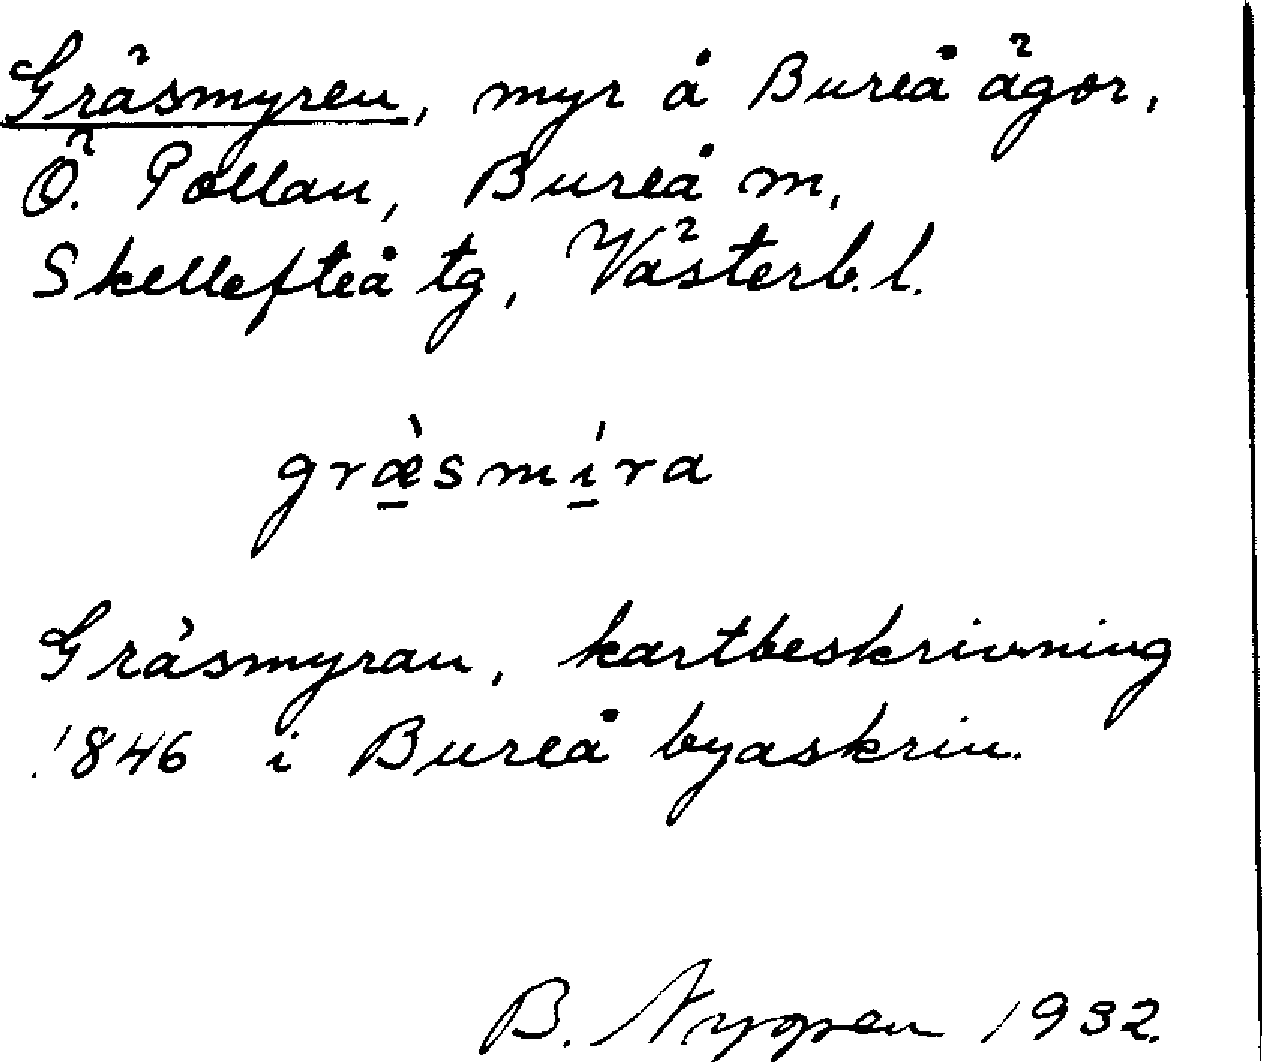 Gräsmyren, myr å Bureå ägor,
Ö. Pollan, Bureå m,
Skellefteå tg, Västerb. l.
græ̀smíra
Gräsmyran, kartbeskrivning
1846 i Bureå byaskrin.
B. Nygren 1932.